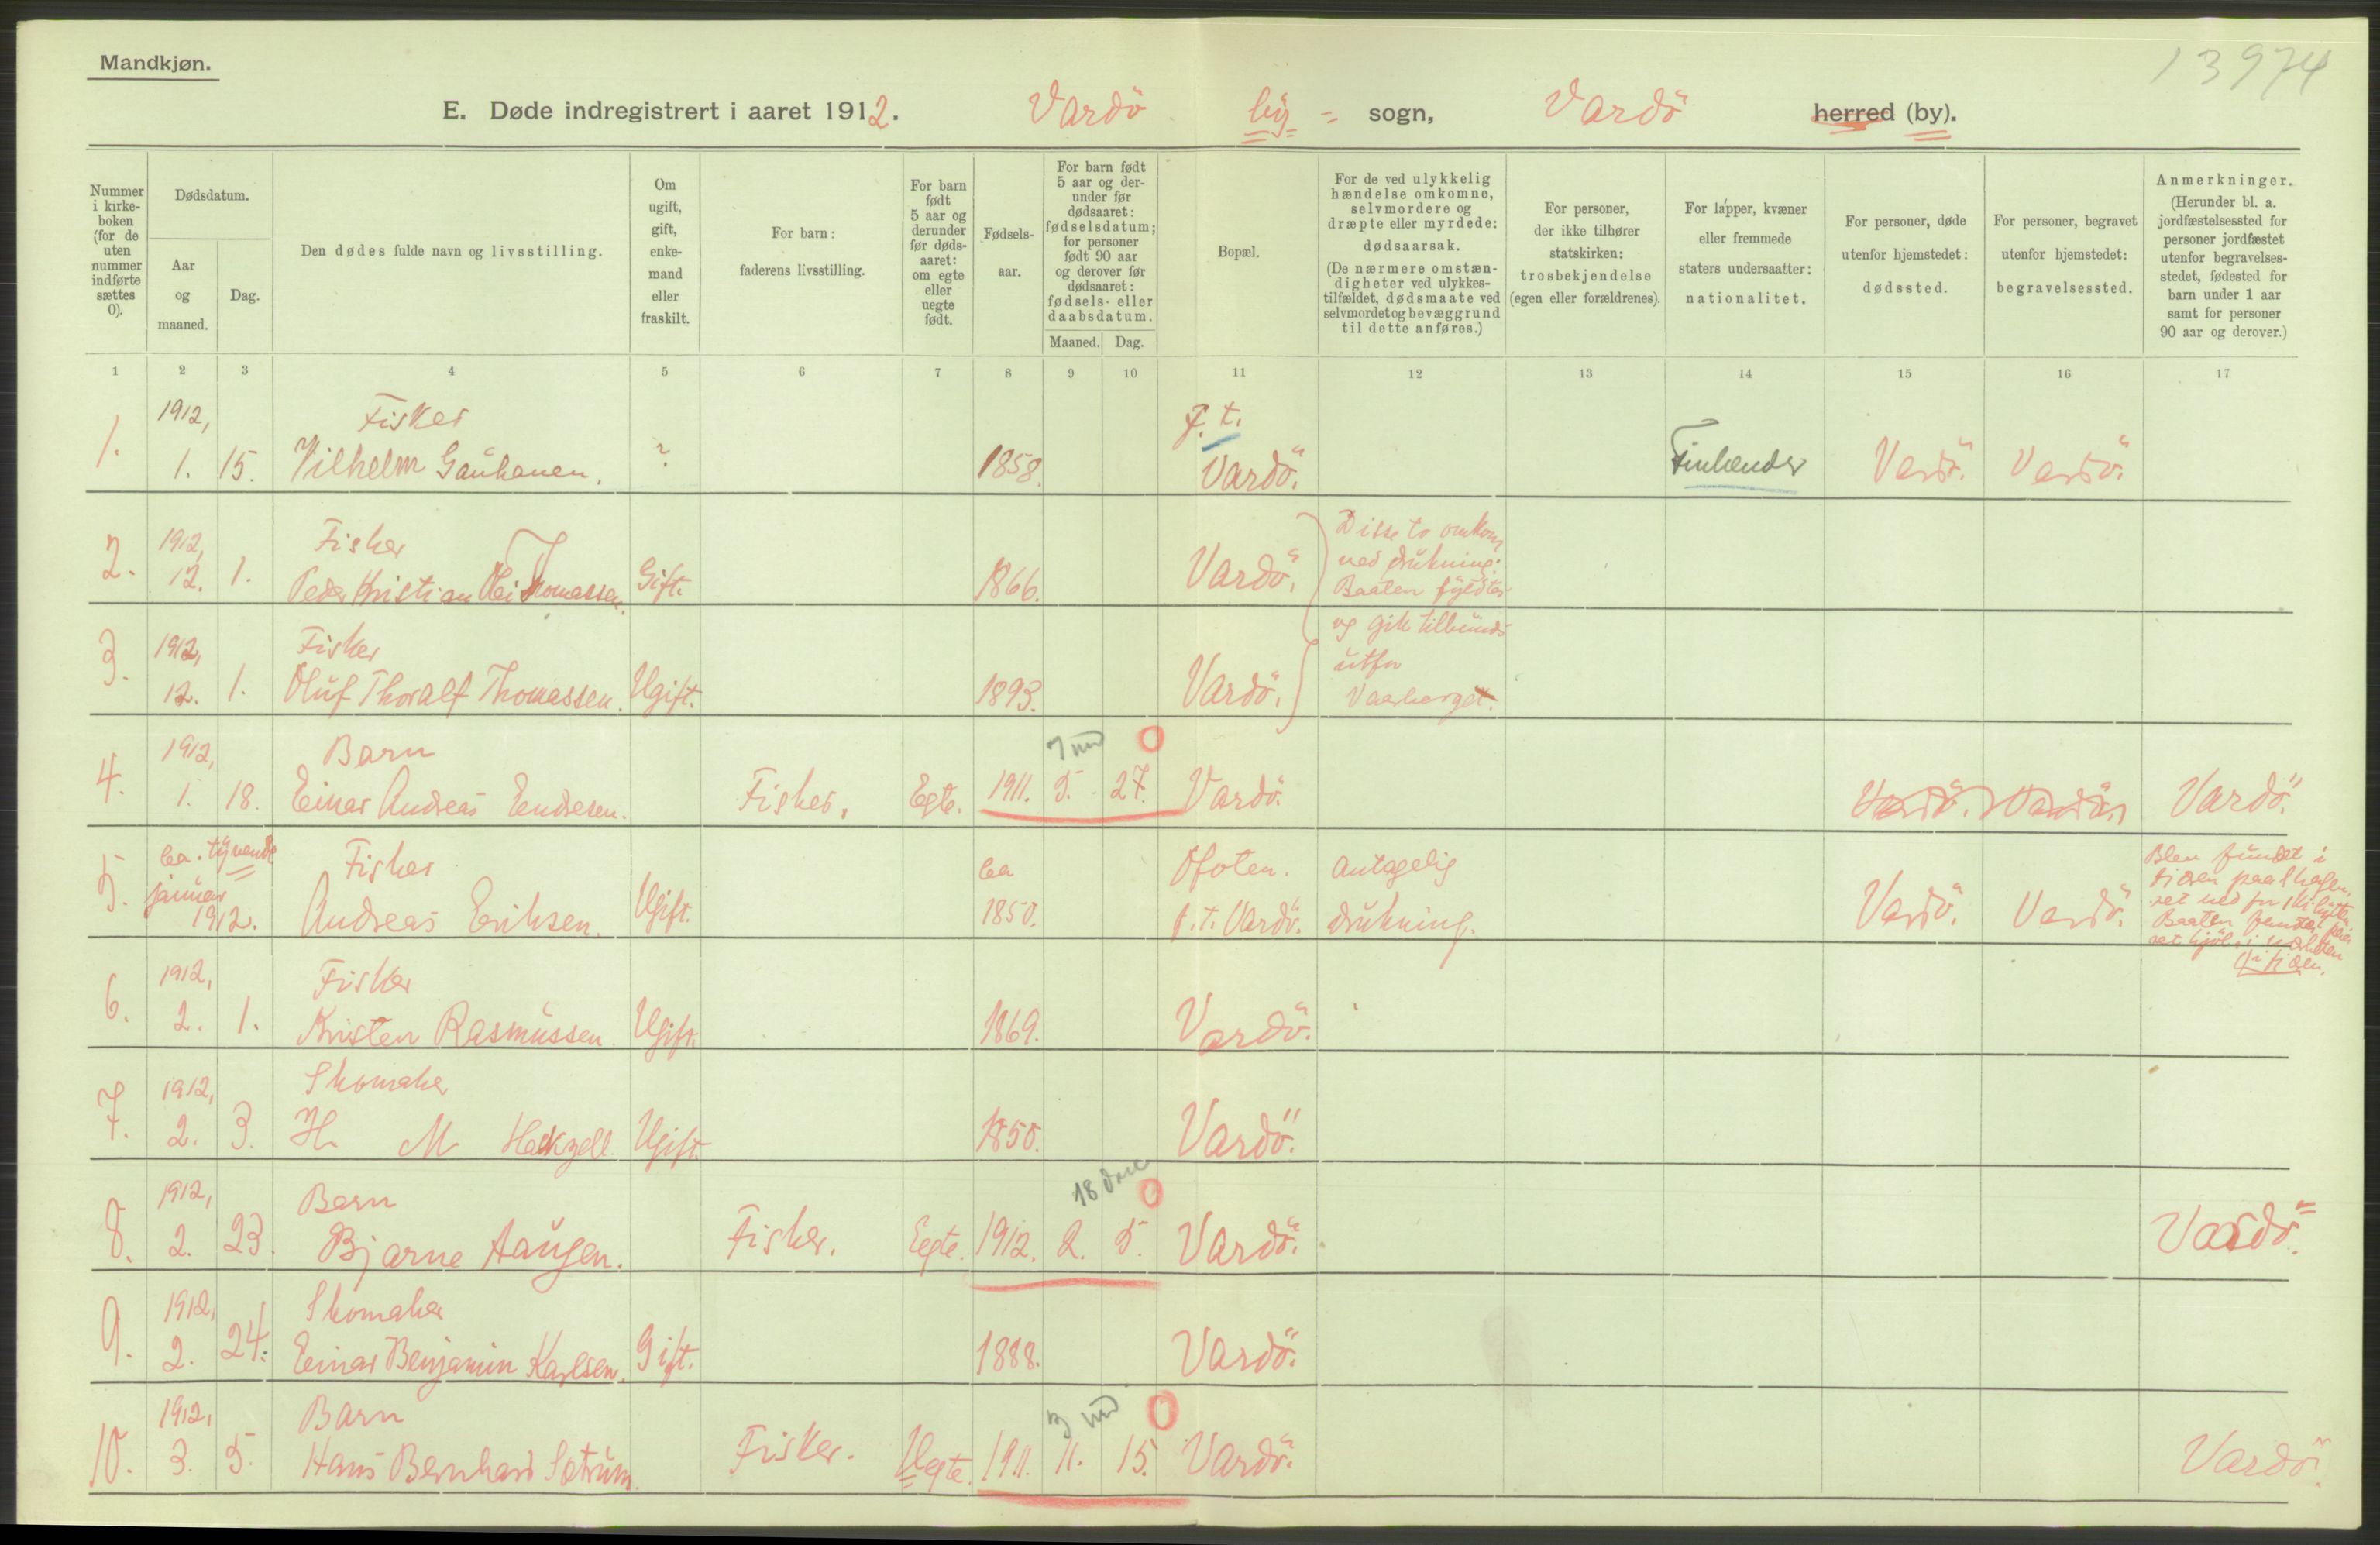 Mandkjøn.
13974
E. Døde indregistrert i aaret 1912. Vardö by = sogn, Vardö herred (by).
Nummer i kirke-boken (for de uten nummer indførte sættes 0).
Dødsdatum.
Aar og maaned.
Dag.
Den dødes fulde navn og livsstilling.
Om ugift, gift, enke-mand eller fraskilt.
For barn: faderens livsstilling.
For barn født 5 aar og derunder før døds-aaret: om egte eller uegte født.
Fødsels-aar.
For barn født 5 aar og der-under før dødsaaret: fødselsdatum; for personer født 90 aar og derover før dødsaaret: fødsels- eller daabsdatum.
Maaned. Dag.
Bopæl.
For de ved ulykkelig hændelse omkomne, selvmordere og dræpte eller myrdede: dødsaarsak.
(De nærmere omstæn-digheter ved ulykkes-tilfældet, dødsmaate ved selvmordet og bevæggrund til dette anføres.)
For personer, der ikke tilhører statskirken: trosbekjendelse (egen eller forældrenes).
For lapper, kvæner eller fremmede staters undersaatter: nationalitet.
For personer, døde utenfor hjemstedet: dødssted.
For personer, begravet utenfor hjemstedet: begravelsessted.
Anmerkninger.
(Herunder bl. a. jordfæstelsessted for personer jordfæstet utenfor begravelses-stedet, fødested for barn under 1 aar samt for personer 90 aar og derover.)
1 2 3 4 5 6 7 8 9 10 11 12 13 14 15 16 17
1912, Fisker F. t.
1. 1. 15. Vilhelm ? 1858. Vardö. Finlender Vardö. Vardö.
1912, Fisker Disse to omkom
2. 12. 1. Peder Kristian Thomassen. Gift. 1866. Vardö. ved drukning:
Baaten fyldtes
1912, Fisker og gik tilbunds
3. 12. 1. Oluf Thoralf Thomassen. Ugift. 1893. Vardö. utfor
Vaarberget.
1912, Barn 7 md 0
4. 1. 18. Einar Andreas Endresen. Fisker. Egte. 1911. 5. 27. Vardö. Vardö. Vardö. Vardö.
5. Ca. tyvende januar 1912. Fisker Andreas Eriksen. Ugift. Ca 1850. Ofoten. f. t. Vardö. Antagelig drukning. Vardö. Vardö. Blev fundet i
1912, Fisker
6. 2. 1. Kristen Rasmussen Ugift. 1869. Vardö.
1912, Skomaker
7. 2. 3. H. M. Hackzell Ugift. 1850. Vardö.
1912, Barn 18 0
8. 2. 23. Bjarne Haugen. Fisker. Egte. 1912. 2. 5. Vardö. Vardö.
1912, Skomaker
9. 2. 24. Einar Benjamin Karlsen. Gift. 1888. Vardö.
1912, Barn 3 md 0
10. 3. 5. Hans Bernhard Fisker. Uegte. 1911. 11. 15. Vardö. Vardö.